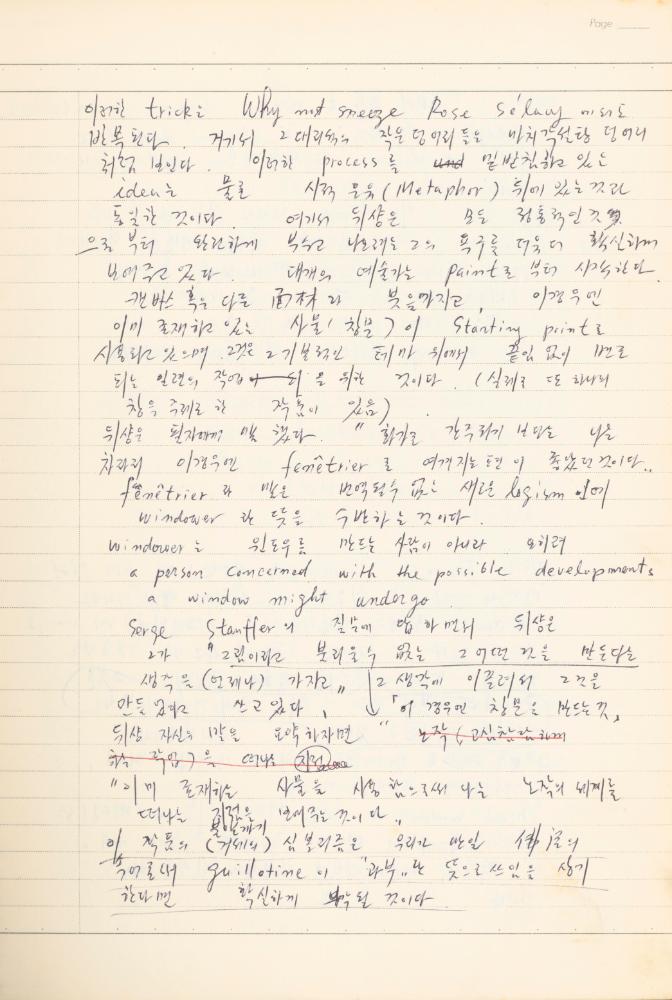 Page
이러한 trick은 Why not sneeze Rose Sélavy 에서도
반복된다. 거기서 그 대리석의 작은 덩어리들은 마치 각설탕 덩어리
처럼 보인다. 이러한 process를 밑받침하고 있는
idea는 물론 시적 은유(Metaphor) 뒤에 있는 것과
동일한 것이다. 여기서 뒤샹은 모든 정통적인 것
으로부터 완전하게 부수고 나오려는 그의 욕구를 더욱 더 확신하게
보여주고 있다. 대개의 예술가는 paint로 부터 시작한다.
캔버스 혹은 다른 画材와 붓을 가지고, 이 경우엔
이미 존재하고 있는 사물(창문)이 Starting point로
시용되고 있으며 그것은 그 기본적인 테마 위에서 끝임 없이 변모
되는 일련의 작업 을 위한 것이다. (실례로 또 하나의
창을 주제로 한 작품이 있음)
뒤샹은 필자에게 말했다. "화가로 간주되기 보다는 나는
차라리 이 경우엔 fenêtrier로 여겨지는 편이 좋았던 것이다."
fenêtrier란 말은 번역될 수 없는 새로운 logism인데
windower란 뜻을 수반하는 것이다.
windower는 윈도우를 만드는 사람이 아니라 오히려
a person concerned with the possible developments
a window might undergo.
Serge Stauffer의 질문에 답하면서 뒤샹은
그가 "그림이라고 불리울 수 없는 그 어떤 것을 만든다는
생각을 (언제나) 가지고" 그 생각에 이끌려서 그것을
만들었다고 쓰고 있다, 「이 경우엔 창문을 만드는 것」
뒤샹 자신의 말을 요약하자면 " 노작(고심참담하게
하는 작업)을 떠나는 지점
"이미 존재하는 사물을 사용함으로써 나는 노작의 세계를
떠나는 지점을 보여주는 것이다."
이 작품의 (거세의) 심볼리즘은 우리가 만일 佛語의
속어로써 guillotine이 "과부"란 뜻으로 쓰임을 상기
한다면 확실하게 될 것이다.